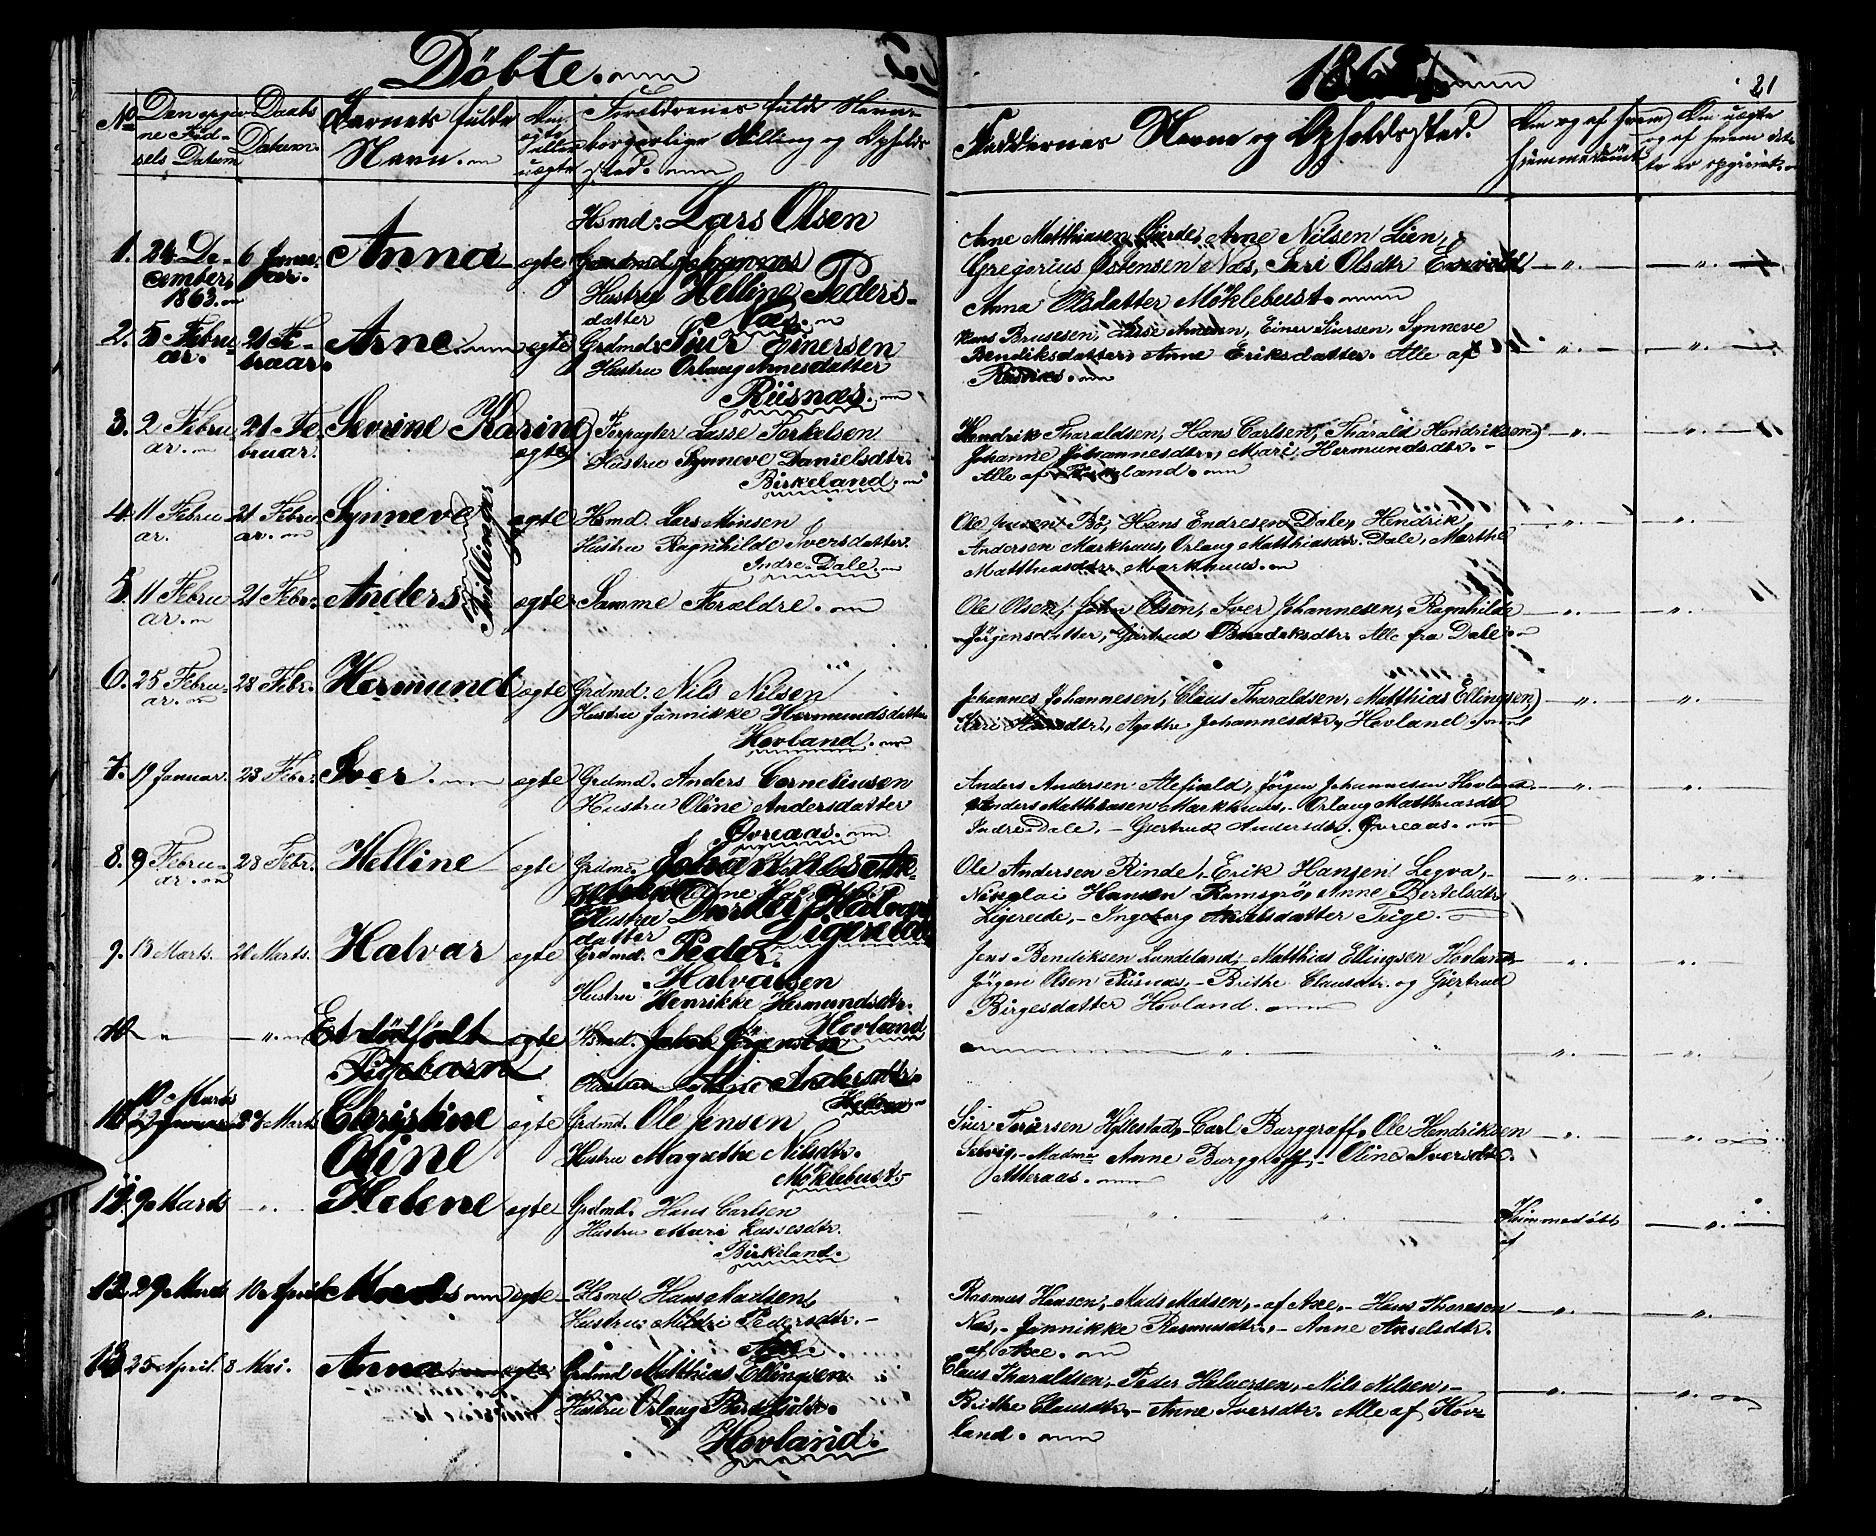 Döbte.
1864.
21
No
Den opgiv-
ne Föd-
sels Datum
Daabs
Datum.
Barnets fulde
Navn.
ægte
eller
uægte
Forældrenes fulde Navne
borgerlige Stilling og Opholds
sted.
Faddernes Navne og Opholdssted.
Om og af hvem
hjemmedöbt
Om uægte
og af hvem det-
te er opgivet.
1. 24 De-
cember
1863.
6 Janu-
ar.
Anna ægte
Hsmd. Lars Olsen
Hustru Helline Peders-
datter Næs.
Arne Matthiasen Gjerde, Arne Nilsen Lien,
Gregorius Østensen Næs, Sari Olsdtr
Anna Olsdatter Möklebust.
2. 5 Febru-
ar.
21 Fe-
bruar.
Arne ægte
Grdmd. Siur Einersen
Hustru Orlaug Arnesdatter
Riisnæs.
Einer Siursen, Synneve
Bendiksdatter, Anne Eriksdatter. Alle af
3. 2 Febru
ar.
21 Fe
bruar.
Severine Karine ægte
Forpagter Lasse Torkelsen
Hustru Synneve Danielsdtr.
Birkeland.
Hendrik Tharaldsen, Hans Carlsen, Tharald Hendriksen
Johanne Johannesdtr., Mari Hermundsdtr. -
Alle af
4. 11 Febru
ar.
21 Febru
ar.
Synneve ægte
Tvillinger
Hsmd Lars
Hustru Ragnhilde Iversdatter.
Indre Dale.
Ole Bö, Hans Endresen Dale, Hendrik
Andersen Markhuus, Orlaug Matthiasdr. Dale, Marthe
Matthiasdtr. Markhuus.
5. 11 Febru
ar.
21 Febr.
Anders ægte
Samme Forældre.
Ole Olsen, John Olsen, Iver Johannesen, Ragnhilde
Jörgensdatter, Gjertrud Bendiksdtr. Alle fra Dale.
6. 25 Febru-
ar.
28 Febr.
Hermund ægte
Grdmd. Nils Nilsen
Hustru Jannikke Hermundsdatter
Hovland.
Johannes Johannesen, Claus Tharaldsen, Matthias Ellingsen
Agathe Johannesdtr., Hovland.
7. 19 Januar. 28 Febr.
Iver. ægte
Grdmd. Anders Corneliusen
Hustru Oline Andersdatter
Övreaas.
Anders Andersen Alefjeld, Jörgen Johannesen Hovland.
Anders Matthiasen Markhuus, - Orlaug Matthiasdt.
Indre Dale, - Gjertrud Andersdtr. Övreaas.
8. 9 Febru-
ar.
28 Febr.
Helline ægte
Grdmd. Johannes
Hustru
datter Ligerede
Ole Andersen Rinde, - Erik Hansen Legva, -
Nikolai Hansen Ramsgrö, Anne Bertelsdtr.
Ligerede, - Ingeborg Tuge.
9. 13 Marts. 20 Marts.
Halvar ægte
Grdmd. Peder
Halvarsen
Hustru Henrikke Hermundsdtr.
Hovland
Jens Bendiksen Lundeland, Matthias Ellingsen Hovland
Jörgen Olsen Riisnæs, - Brithe Clausdtr. og Gjertrud
Birgesdatter Hovland.
Et dödfödt ægte
Pigebarn
Hsmd. Jakob Jörgensen
Hustru Andersdtr.
10 Marts
Marts
Christine
Oline ægte
Grdmd. Ole Jensen
Hustru Magrethe Nilsdtr.
Möklebust
Siur Hyllestad, - Carl Burggraff, Ole Hendriksen
Selvig, - Madme Anne Burggraff, - Oline Iversdtr.
Atteraas.
11. 9 Marts
Helene ægte
Grdmd. Hans Carlsen
Hustru Mari Lassesdtr.
Birkeland.
Hjemmedöbt
af
12. 29 Marts 10 April
Mads ægte
Hsmd Hans Madsen
Hustru Mildri Pedersdtr. -
Axe.
Rasmus Hansen, - Mads Madsen, - af Axe, - Hans Thoresen
Næs, - Jannikke Rasmusdtr., - Anne Anselsdtr.
af Axe.
13 25 April. 8 Mai.
Anna ægte
Grdmd Matthias Ellingsen
Hustru Orlaug
Hovland.
Claus Tharaldsen, - Peder Halversen, - Nils Nilsen, -
Brithe Clausdtr., - Anne Iversdtr. Alle af Hov-
land.